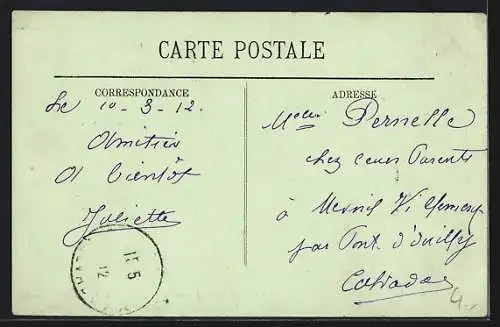 CARTE POSTALE
CORRESPONDANCE
Le 10-3-12.
Amitiés
A bientôt
Juliette
15 5
12
ADRESSE
Melle Pernelle
chez ceurs Parents
à Mesnil Villement
par Pont d'Ouilly
Calvados